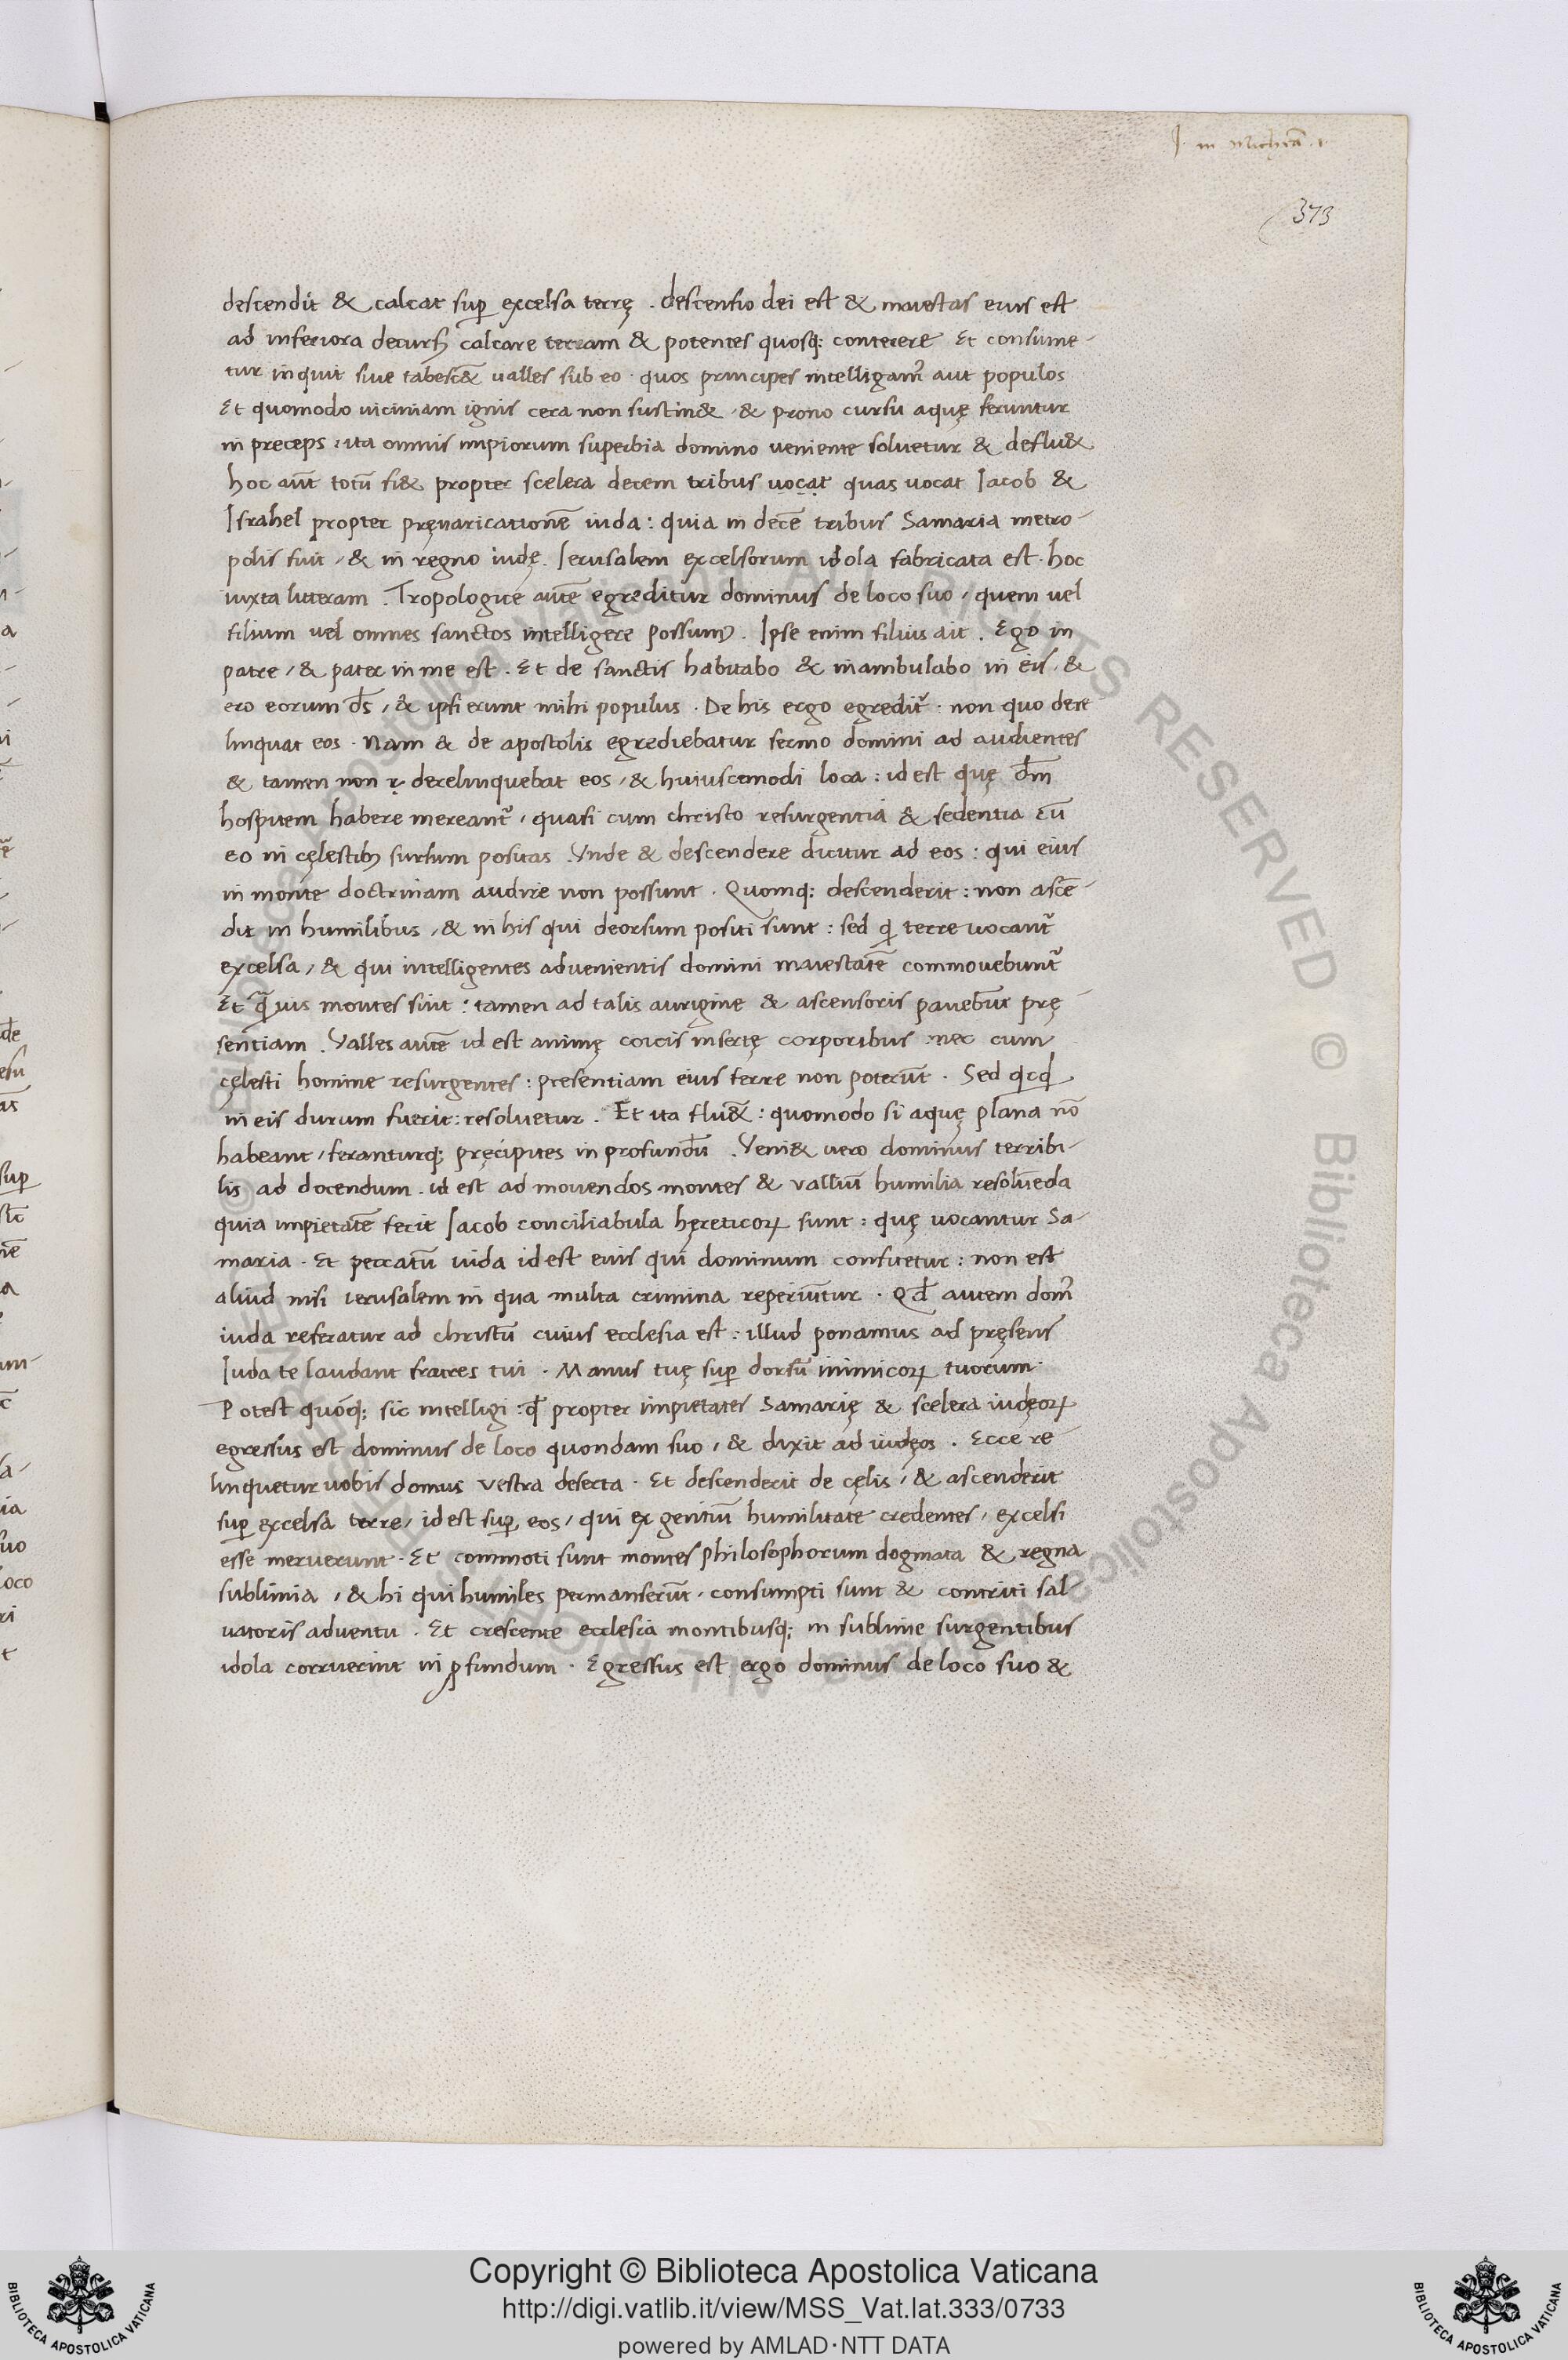 J. in Micheā .1.
373
descendit & calcat sup̲ excelsa terrę . descensio dei est & maiestas eius est
ad inferiora decursꝰ calcare terram & potentes quosq; conterere Et consume-
tur inquit siue tabesc& ualles sub eo . quos principes intelligamꝰ aut populos
Et quomodo uiciniam ignis cera non sustin& / & prono cursu aquę feruntur
in preceps : ita omnis impiorum superbia domino ueniente soluetur & deflu&
hoc aūt totū fi& propter scelera decem tribus uocat quas uocat Iacob &
Israhel propter pręuaricationē iuda : quia in decē tribus Samaria metro-
polis fuit / & in regno iudę Ierusalem excelsorum idola fabricata est . hoc
iuxta litteram . Tropologice autē egreditur dominus de loco suo / quem uel
filium uel omnes sanctos intelligere possumꝰ . Ipse enim filius ait . Ego in
patre / & pater in me est . Et de sanctis habitabo & inambulabo in eis / &
ero eorum d̄s / & ipsi erunt mihi populus . De his ergo egredit᷑ : non quo dere
linquat eos . Nam & de apostolis egrediebatur sermo domini ad audientes
& tamen non r derelinquebat eos / & huiuscemodi loca : id est quę d̄m
hospitem habere mereant᷑ / quasi cum christo resurgentia & sedentia cū
eo in cęlestibꝫ sursum positas . Vnde & descendere dicitur ad eos : qui eius
in monte doctrinam audire non possunt . Quomq; descenderit : non ascē-
dit in humilibus / & in his qui deorsum positi sunt : sed q̇ terre uocant᷑
excelsa / & qui intelligentes aduenientis domini maiestatē commouebunt᷑
Et q̄uis montes sint : tamen ad talis aurigine & ascensoris pauebūt prę-
sentiam . Valles autē id est animę coicis insertę corporibus : nec cum
cęlesti homine resurgentes : presentiam eius ferre non poterūt . Sed qicqd
in eis durum fuerit : resoluetur . Et ita flu& : quomodo si aquę plana nō
habeant / feranturq; pręcipites in profundū . Veni& uero dominus terribi-
lis ad docendum . id est ad mouendos montes & valliū humilia resoluēda
quia impietatē fecit Iacob conciliabula hęreticoꝝ sunt : quę uocantur Sa-
maria . Et peccatū iuda id est eius qui dominum confitetur : non est
aliud nisi ierusalem in qua multa crimina reperiūtur . Qd̄ autem domꝰ
iuda referatur ad christū cuius ecclesia est : illud ponamus ad pręsens
Iuda te laudant fratres tui . Manus tuę sup̲ dorsū inimicoꝝ tuorum .
Potest quoq; sic intelligi : qd̄ propter impietates Samarię & scelera iudęoꝝ
egressus est dominus de loco quondam suo / & dixit ad iudęos . Ecce re-
linquetur uobis domus vestra deserta . Et descenderit de cęlis / & ascenderit
sup̲ excelsa terre / id est sup̲ eos / qui ex gentiū humilitate credentes / excelsi
esse meruerunt . Et commoti sunt montes philosophorum dogmata & regna
sublimia / & hi qui humiles permanserūt / consumpti sunt & contriti sal-
uatoris aduentu . Et crescente ecclesia montibusq; in sublime surgentibus
idola corruerint in ꝓfundum . Egressus est ergo dominus de loco suo &
Copyright © Biblioteca Apostolica Vaticana
http://digi.vatlib.it/view/MSS_Vat.lat.333/0733
powered by AMLAD·NTT DATA